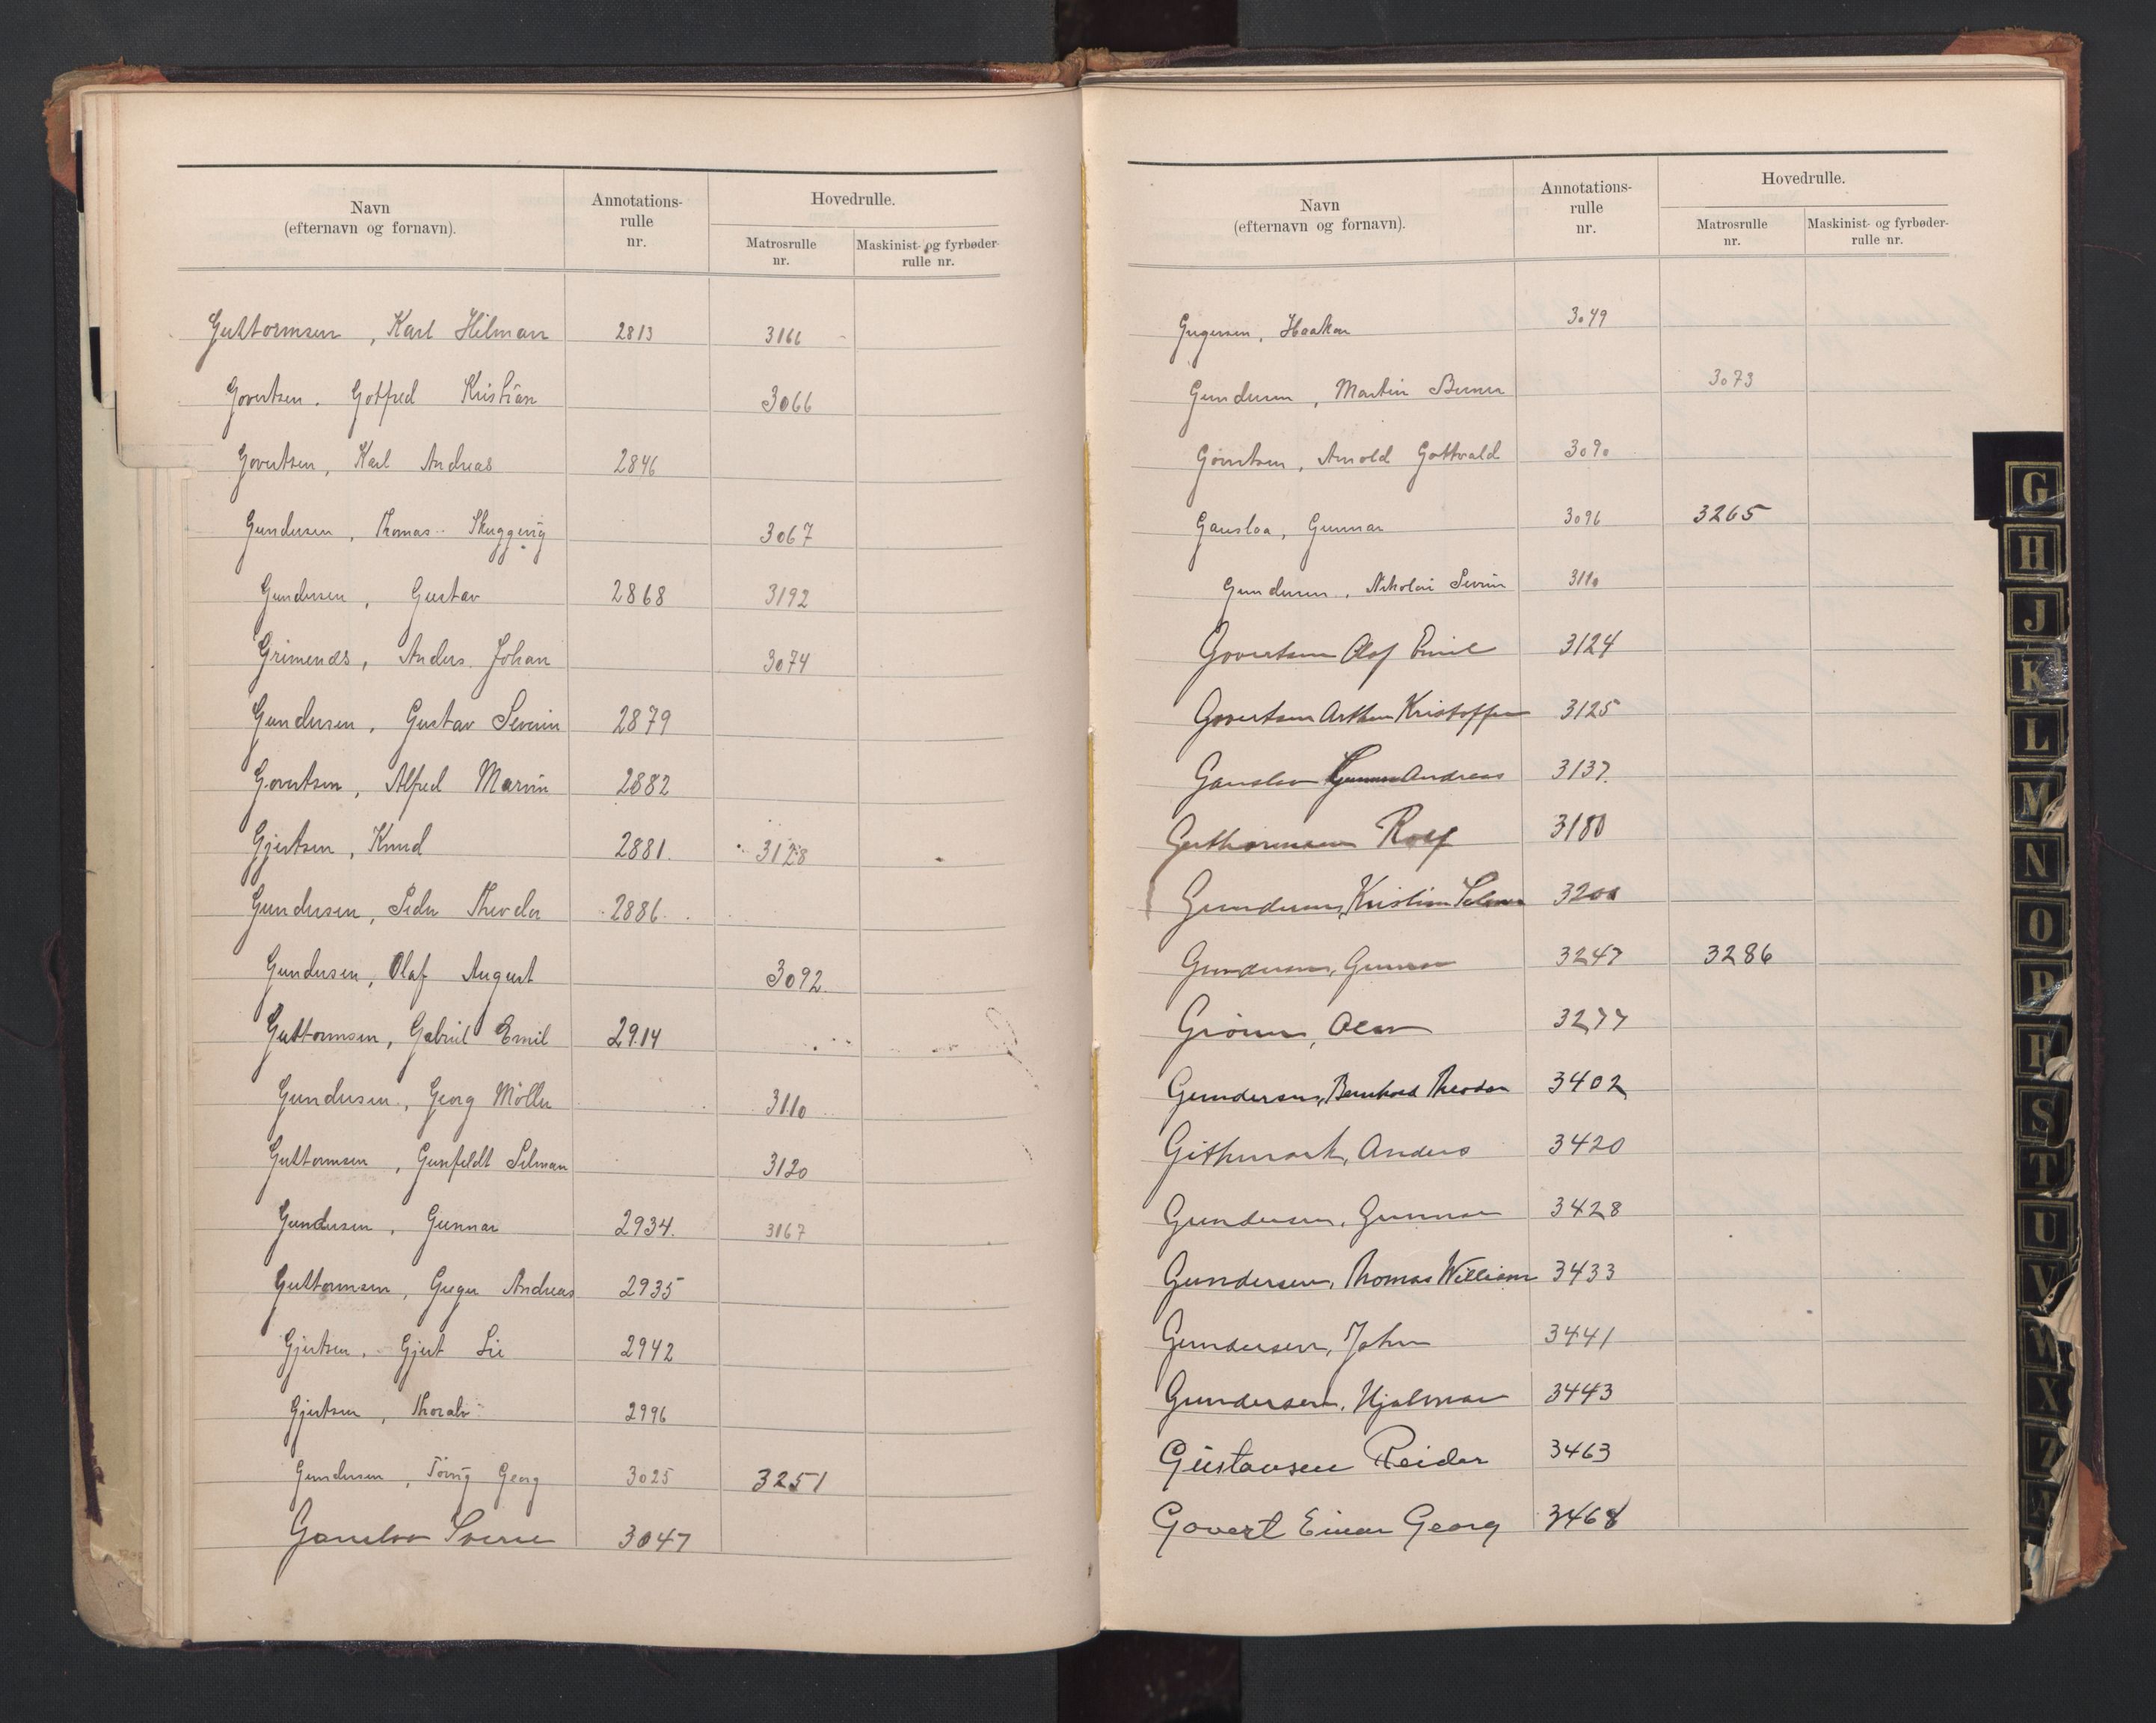 Navn
(efternavn og fornavn).
Annotations-
rulle
nr.
Hovedrulle.
Matrosrulle
nr.
Maskinist- og fyrbøder-
rulle nr.
Guttormsen, Karl Hilman 2813 3166
Govertsen. Gotfred Kristian 3066
Govertsen, Karl Andreas 2846
Gundersen, Thomas 3067
Gundersen, Gustav 2868 3192
Grimenæs, Anders Johan 3074
Gundersen, Gustav Severin 2879
Govertsen, Alfred Marvin 2882
Gjertsen, Knud 2881. 3128
Gundersen, Peder Theodor 2886
Gundersen, Olaf August 3092
Guttormsen, Gabriel Emil 2914
Gundersen, Georg Möller 3110
Guttormsen, Gunfeldt Selman 3120
Gundersen, Gunnar 2934. 3167
Guttormsen, Greger Andreas 2935
Gjertsen, Gjert Lie 2942
Gjertsen, Thoralv 2996
Gundersen, Georg 3025 3251
Gansloa Sverre 3047
Navn
(efternavn og fornavn).
Annotations-
rulle
nr.
Hovedrulle.
Matrosrulle
nr.
Maskinist- og fyrbøder-
rulle nr.
Gregersen, Haakon 3049
Gundersen, Martin 3073
Govertsen, Arnold Gottvald 3090
Gansloa, Gunnar 3096 3265
Gundersen, Nikolai Severin 3110
Govertsen Olaf Emil 3124
Govertsen Arthur Kristoffer 3125
Gansloa Andreas 3137.
Guthormsen Rolf 3180
Gundersen, Kristian 3200
Gundersen, Gunnar 3247 3286
3277
Gundersen, Bernhard Theodor 3402
Githmark, Anders 3420
Gundersen, Gunnar 3428
Gundersen, Thomas William 3433
Gundersen, John 3441
Gundersen, Hjalmar 3443
Gustavsen Reidar 3463
Govert Einar Georg 3468
G
H
J
K
L
M
N
O
P
R
S
T
U
V
W
X
Z